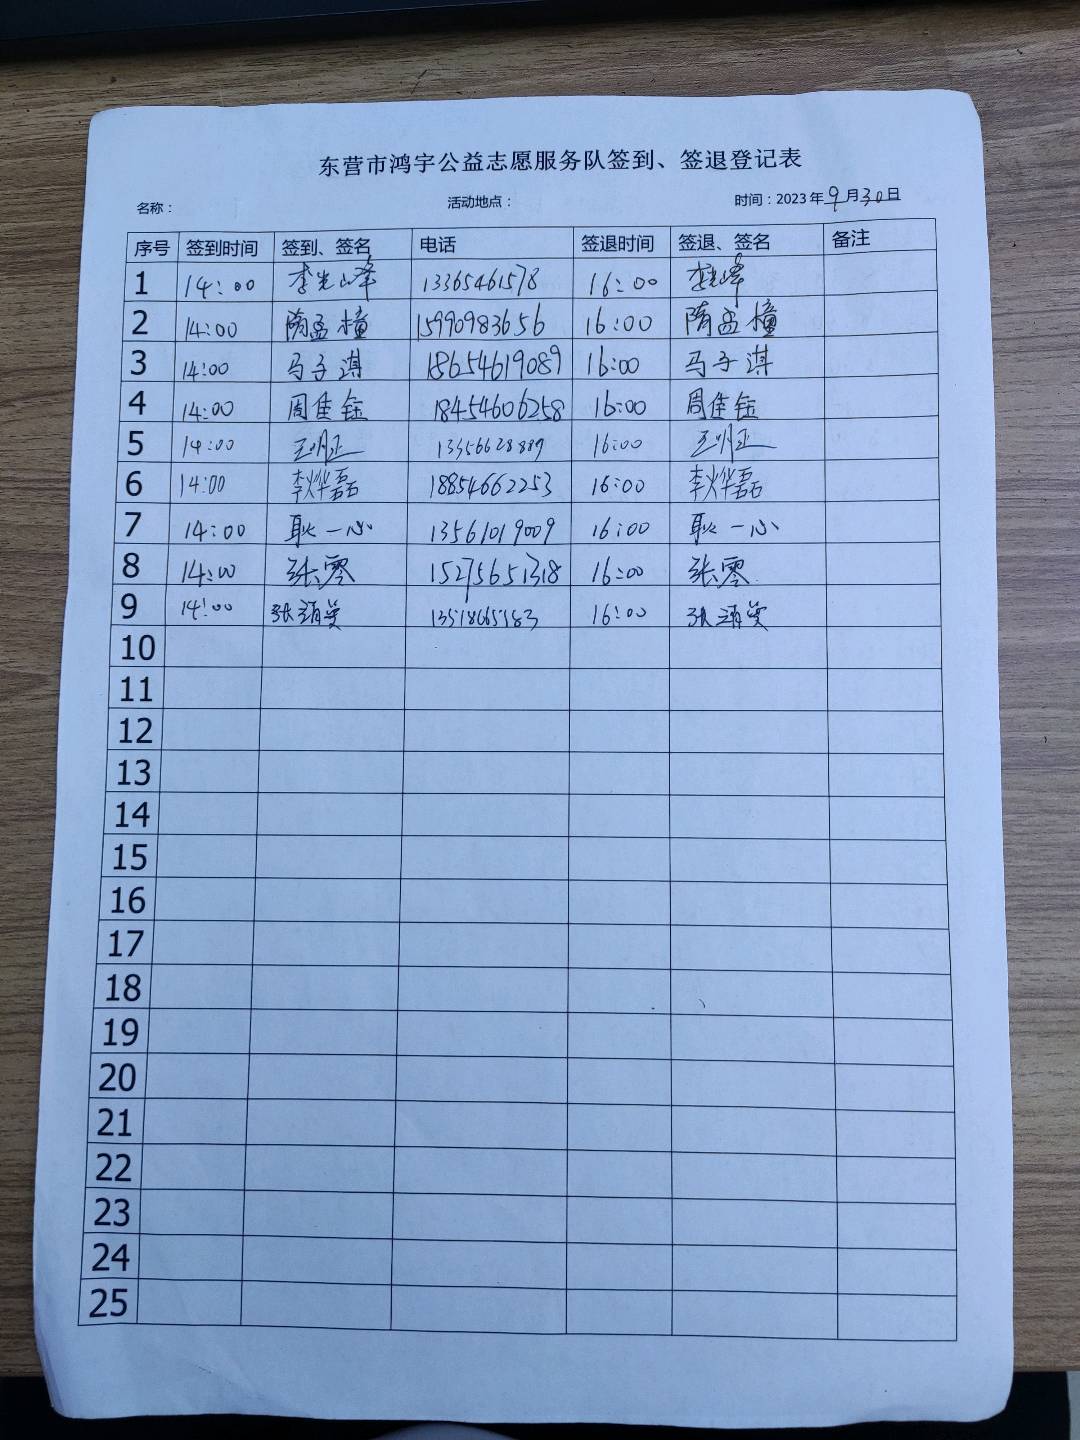 东营市鸿宇公益志愿服务队签到、签退登记表
名称： 活动地点： 时间：2023年9月30日
序号 签到时间 签到、签名 电话 签退时间 签退、签名 备注
1 14:00 李光峰 13365461578 16:00 李光峰
2 14:00 隋孟橦 15990983656 16:00 隋孟橦
3 14:00 马子淇 18654619089 16:00 马子淇
4 14:00 周佳鑫 18454606258 16:00 周佳鑫
5 14:00 王明正 13356628889 16:00 王明正
6 14:00 李烨磊 18854662253 16:00 李烨磊
7 14:00 耿一心 13561019009 16:00 耿一心
8 14:00 张零 15275651318 16:00 张零
9 14:00 张 16:00 张
10
11
12
13
14
15
16
17
18
19
20
21
22
23
24
25